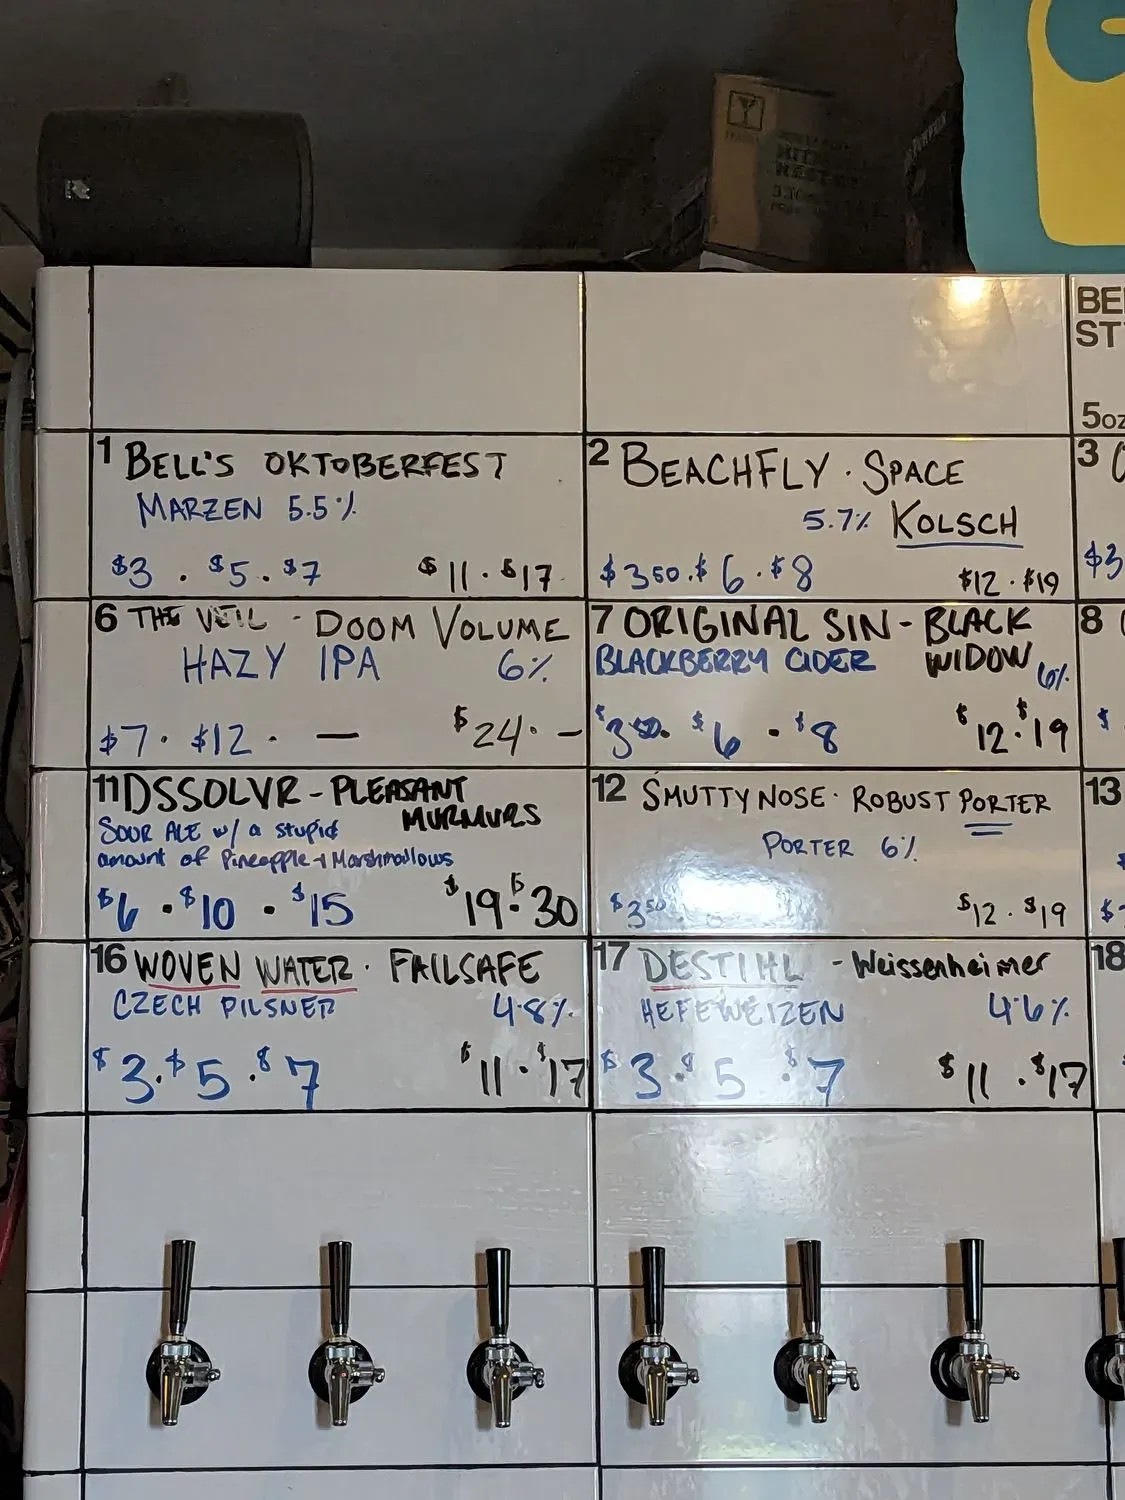 BE
ST
5oz
1 BELL'S OKTOBERFEST
MARZEN 5.5%
$3 . $5 . $7 $11 . $17
2 BEACHFLY . SPACE
5.7% KOLSCH
$3.50 . $6 . $8 $12 . $19
3
$3
6 THE VEIL - DOOM VOLUME
HAZY IPA 6%
$7 . $12 . — $24 . —
7 ORIGINAL SIN - BLACK
BLACKBERRY CIDER WIDOW 6%
$3.50 . $6 . $8 $12 . $19
8
$
11 DSSOLVR - PLEASANT
MURMURS
SOUR ALE w/ a stupid
amount of Pineapple + Marshmallows
$6 . $10 . $15 $19 . $30
12 SMUTTYNOSE . ROBUST PORTER
PORTER 6%
$3.50 $12 . $19
13
$
16 WOVEN WATER . FAILSAFE
CZECH PILSNER 4.8%
$3 . $5 . $7 $11 . $17
17 DESTIHL - Weissenheimer
HEFEWEIZEN 4.6%
$3 . $5 . $7 $11 . $17
18